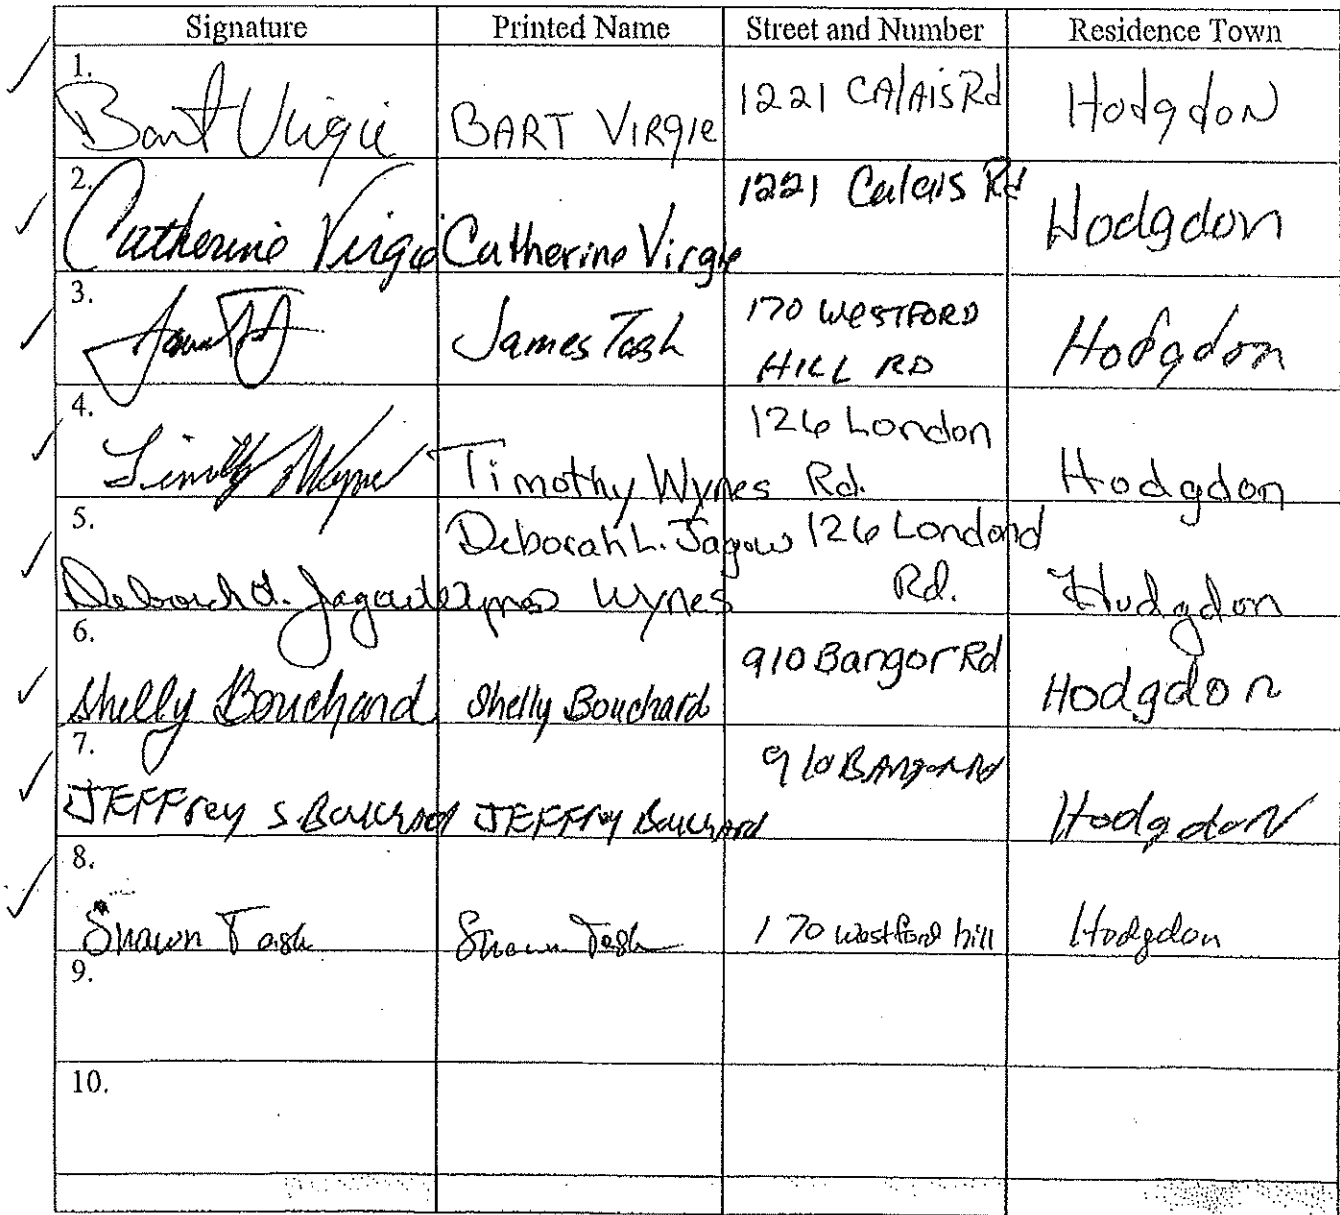 Signature Printed Name Street and Number Residence Town
1. Bart Virgie BART VIRGIE 1221 CAlAis Rd Hodgdon
2. Catherine Virgie Catherine Virgie 1221 Calais Rd Hodgdon
3. James Tash 170 WESTFORD
HILL RD Hodgdon
4. Timothy Wynes Timothy Wynes 126 London
Rd. Hodgdon
5. Deborah L. Jagow 126 Londond
Deborah L. Jagow Wynes Wynes Rd. Hodgdon
6. Shelly Bouchard Shelly Bouchard 910 Bangor Rd Hodgdon
7. JEFFrey S. Bouchard JEFFrey Bouchard 910 BAngor Rd HodgdoN
8. Shawn Tash Shawn Tash 170 Westford hill Hodgdon
9.
10.